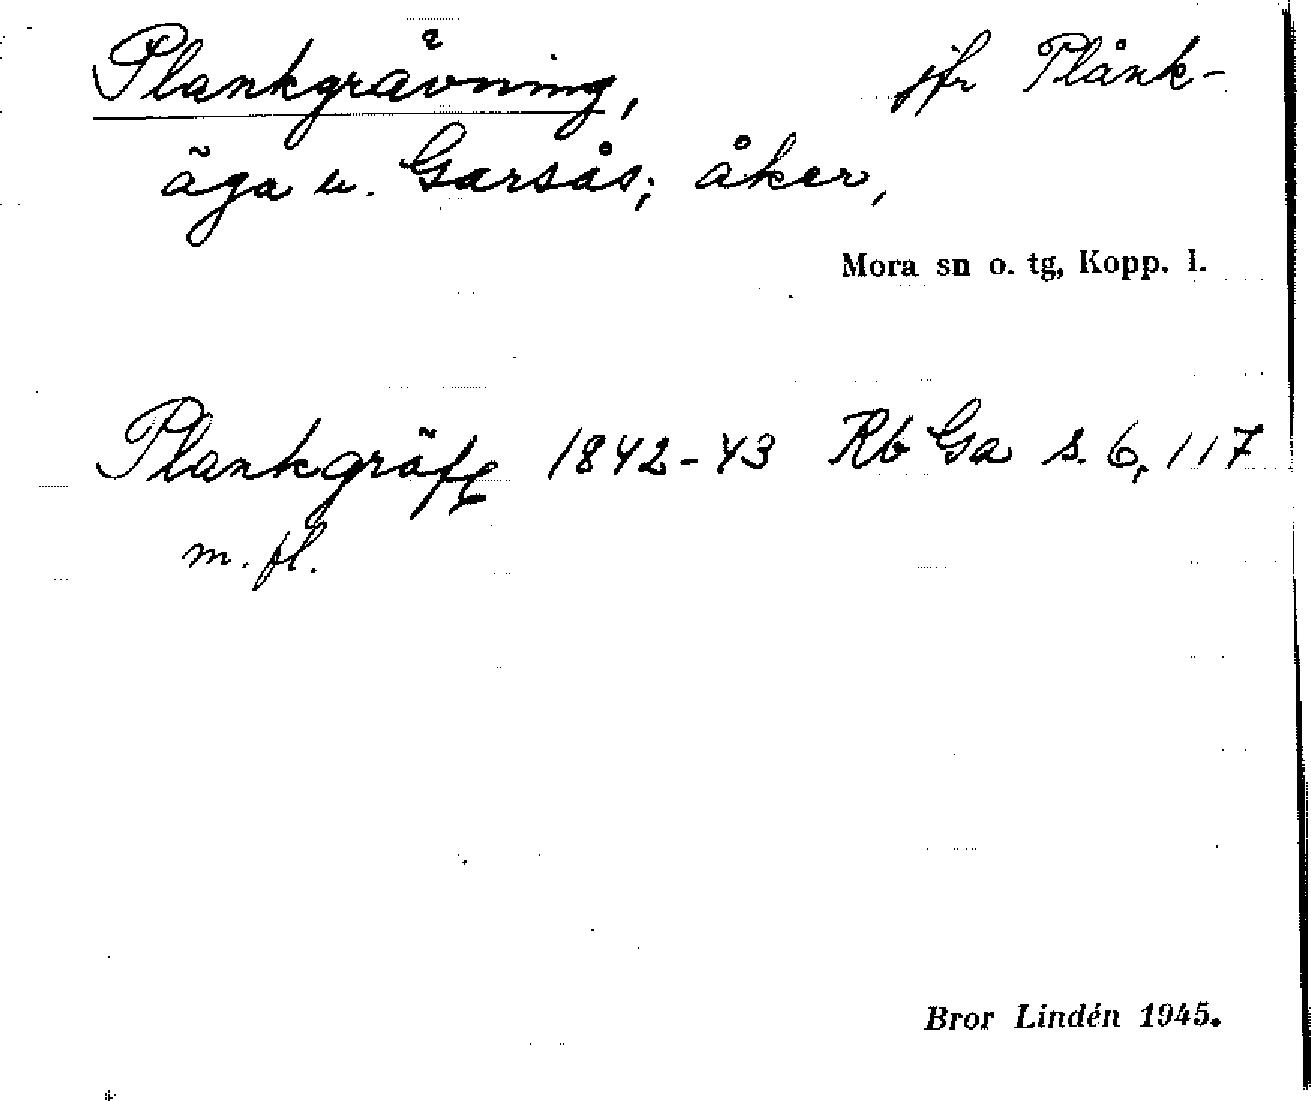 Plankgrävning, jfr Plånk-
äga u. Garsås; åker,
Mora sn o. tg, Kopp. l.
Plankgräfg 1842-43 Rb Ga s. 6, 117
m. fl.
Bror Lindén 1945.